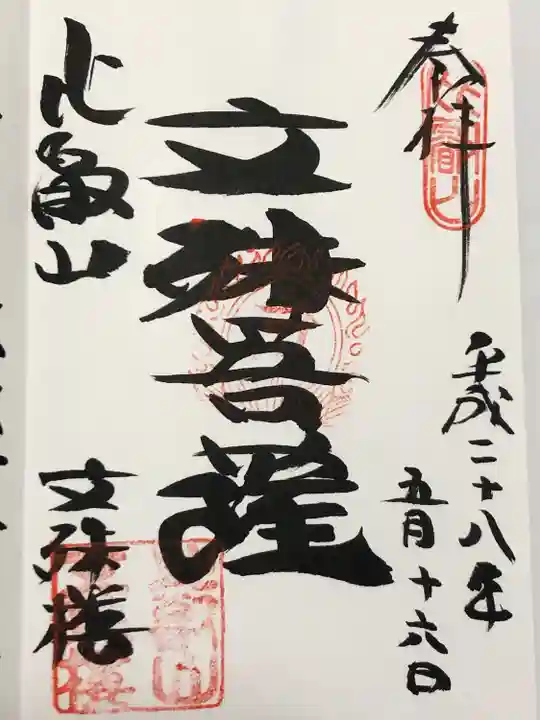 奉拝
平成二十八年
五月十六日
文殊菩薩
比叡山
文殊楼